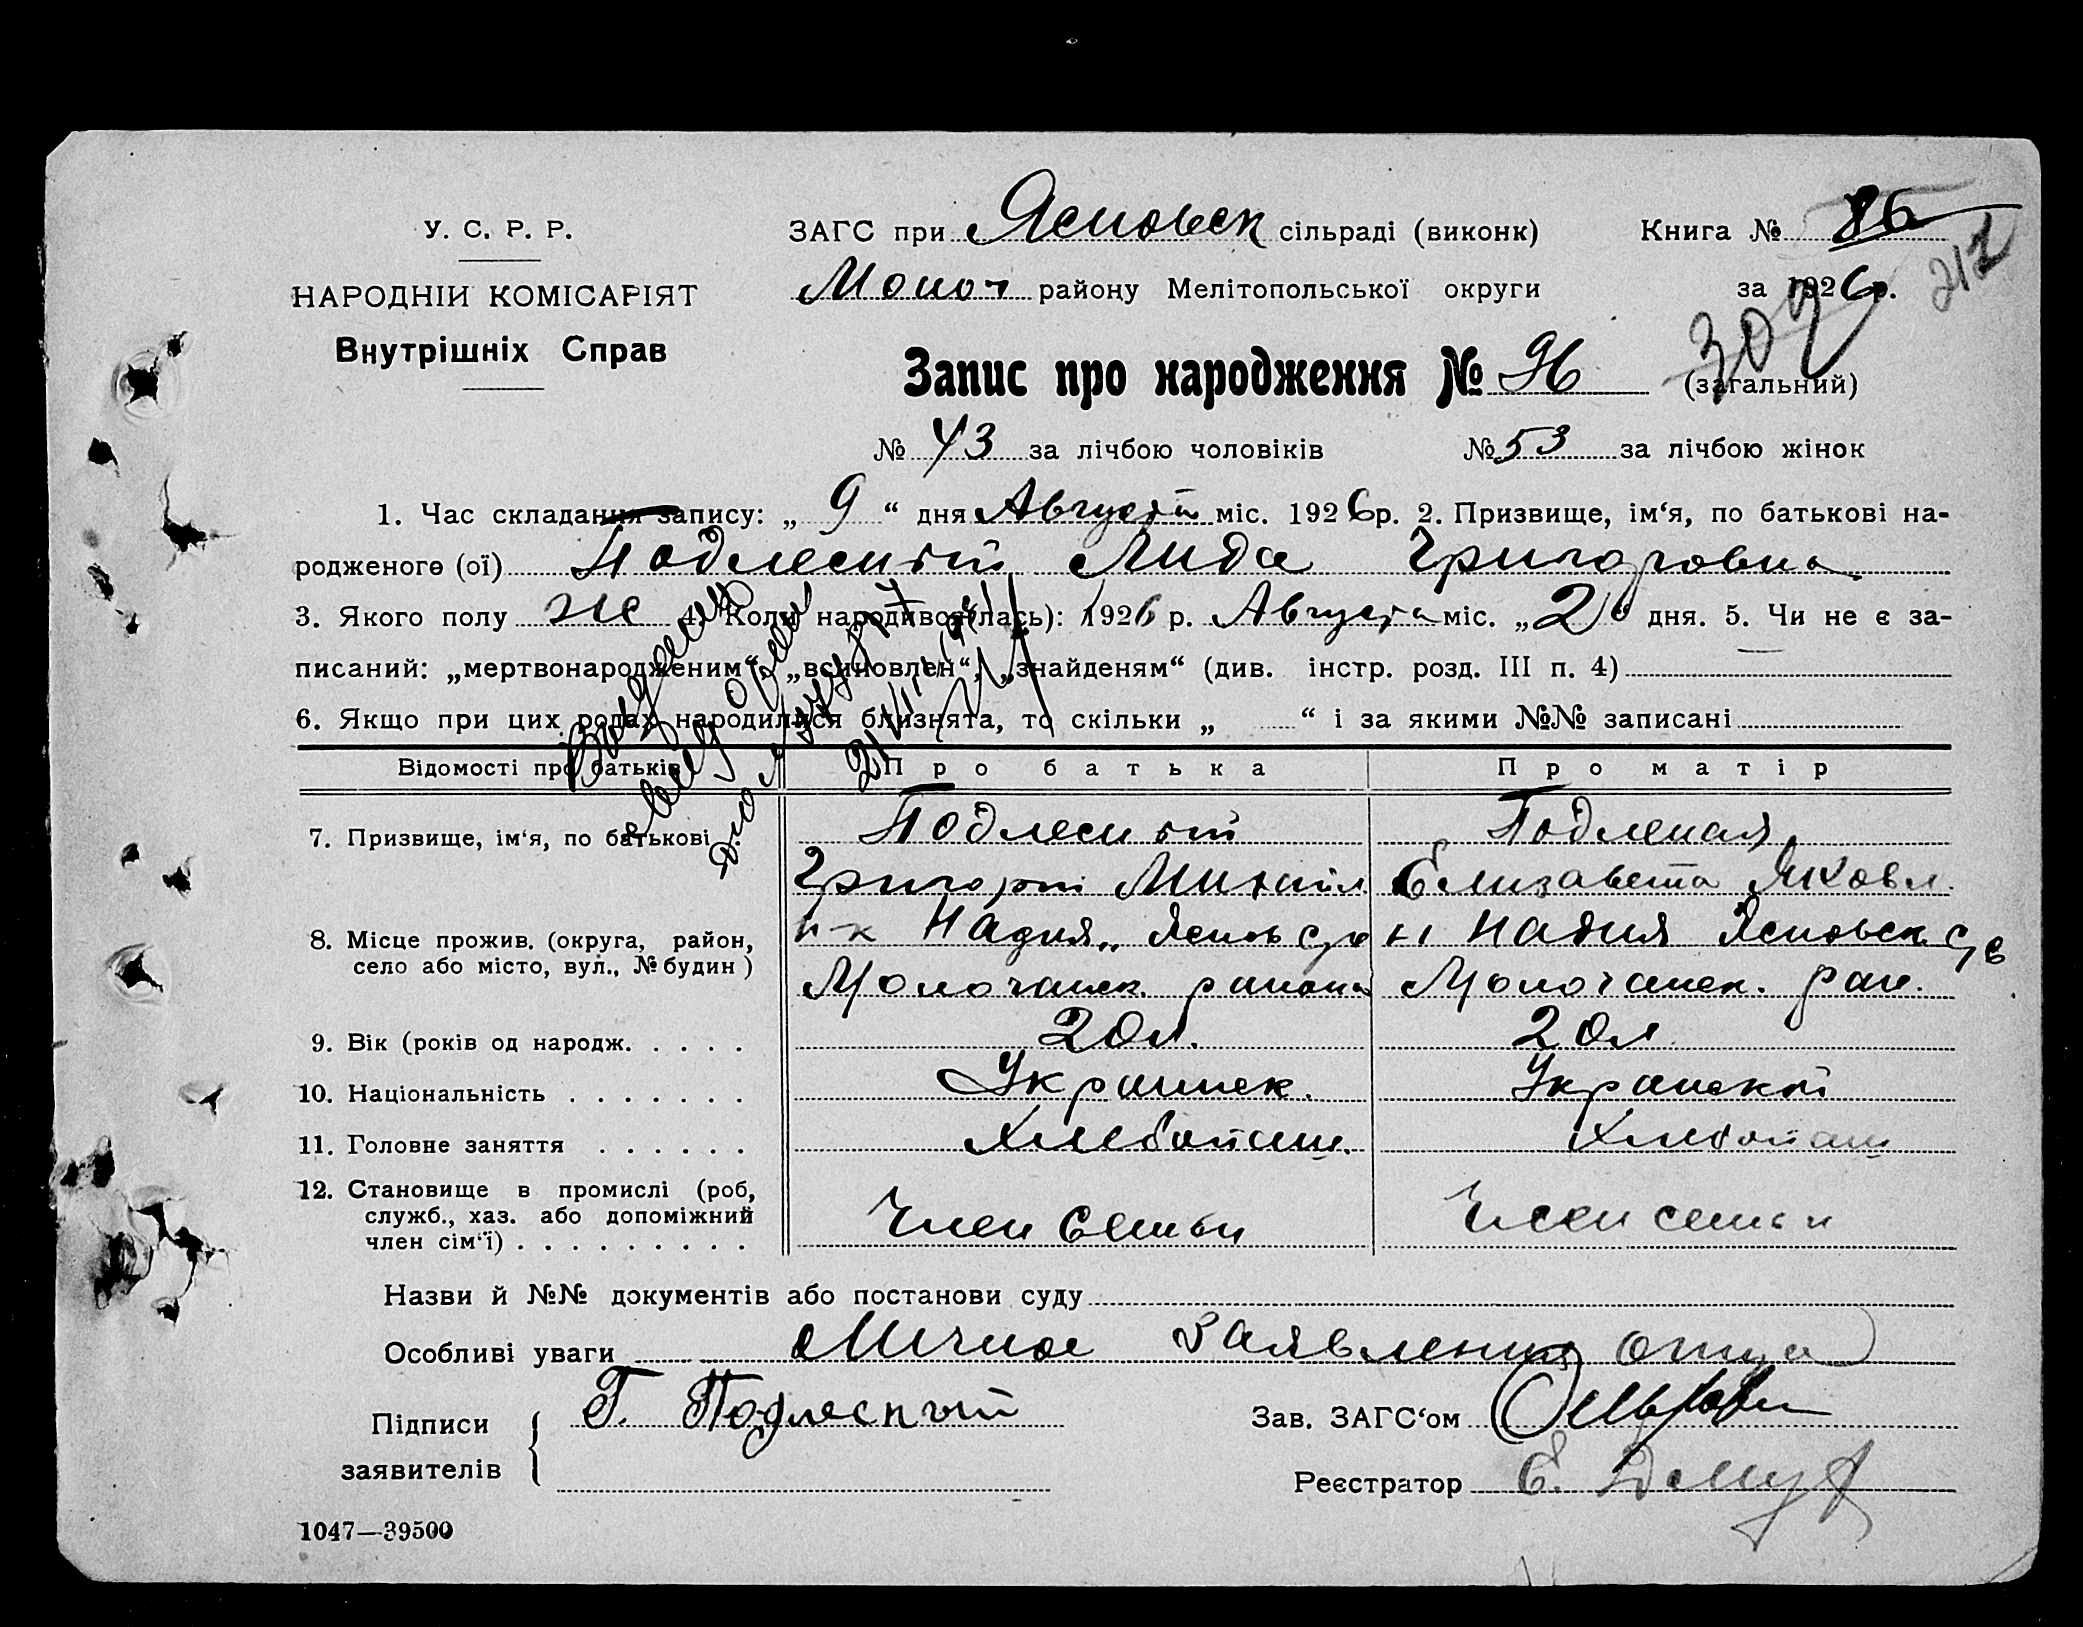 У. С. Р. Р.
НАРОДНІЙ КОМІСАРІЯТ
Внутрішніх Справ
ЗАГС при Ясновск сільраді (виконк)
Молоч району Мелітопольської округи
Книга № 86
за 1926 р.
212
302
Запис про народження № 96 (загальний)
№ 43 за лічбою чоловіків № 53 за лічбою жінок
1. Час складання запису: „ 9 “ дня Августа міс. 1926 р. 2. Призвище, ім‘я, по батькові на-
родженого (ої) Подлесный Лида Григоровна
3. Якого полу ж 4. Коли народився(лась): 1926 р. Августа міс. „ 2 “ дня. 5. Чи не є за-
писаний: „мертвонародженим“, „всиновлен“, „знайденям“ (див. інстр. розд. III п. 4)
6. Якщо при цих родах народилися близнята, то скільки „ “ і за якими №№ записані
Відомості про батьків Про батька Про матір
7. Призвище, ім‘я, по батькові
Подлесный Подлесная
Григорий Михайл Елизавета Яковл.
8. Місце прожив. (округа, район,
село або місто, вул., № будин)
Надия„ Яснов с/с Надия Ясновск с/с
Молочанск. района Молочанск. рай.
9. Вік (років од народж. . . . . 20 л. 20 л
10. Національність . . . . . . . Украинск. Украинской
11. Головне заняття . . . . . . Хлебопаш. Хлебопаш
12. Становище в промислі (роб,
служб., хаз. або допоміжний
член сім‘ї) . . . . . . . . . Член семьи Член семьи
Назви й №№ документів або постанови суду
Особливі уваги Личное заявление отца
Підписи
заявителів
Г. Подлесный
Зав. ЗАГС‘ом
Реєстратор Е.
1047—39500